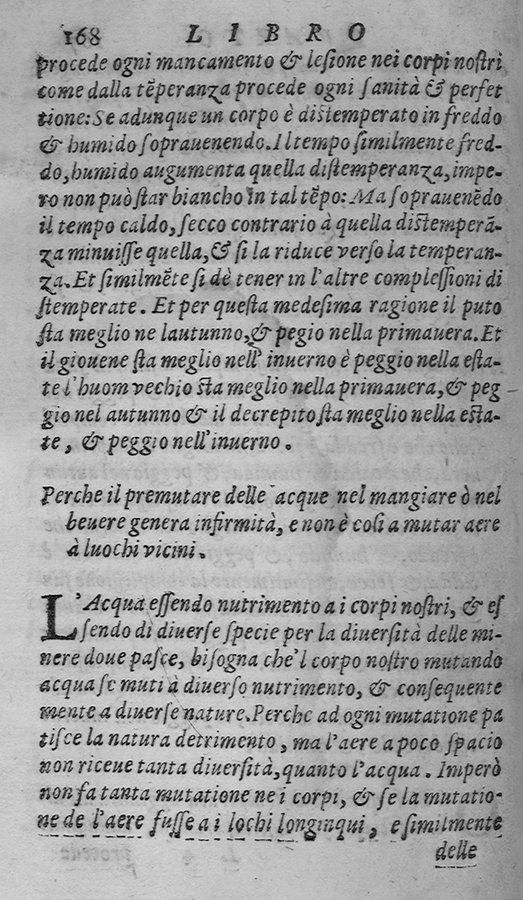 168 LIBRO
procede ogni mancamento & lesione nei corpi nostri
come dalla tẽperanza procede ogni sanità & perfet
tione: Se adunque un corpo è distemperato in freddo
& humido soprauenendo. Il tempo similmente fred-
do, humido augumenta quella distemperanza, impe-
ro non può star biancho in tal tẽpo: Ma soprauenẽdo
il tempo caldo, secco contrario à quella distemperã-
za minuisse quella, & si la riduce verso la temperan-
za. Et similmẽte si dè tener in l'altre complessioni di
stemperate. Et per questa medesima ragione il puto
sta meglio ne lautunno, & pegio nella primauera. Et
il giouene sta meglio nell' inuerno è peggio nella esta-
te l'huom vechio sta meglio nella primauera, & peg
gio nel autunno & il decrepito sta meglio nella esta-
te, & peggio nell'inuerno.
Perche il premutare delle acque nel mangiare ò nel
beuere genera infirmità, e non è cosi a mutar aere
à luochi vicini.
L'Acqua essendo nutrimento a i corpi nostri, & es
sendo di diuerse specie per la diuersità delle mi-
nere doue pasce, bisogna che'l corpo nostro mutando
acqua se muti à diuerso nutrimento, & consequente
mente a diuerse nature. Perche ad ogni mutatione pa
tisce la natura detrimento, ma l'aere a poco spacio
non riceue tanta diuersità, quanto l'acqua. Imperò
non fa tanta mutatione ne i corpi, & se la mutatio-
ne de l'aere fusse a i lochi longinqui, e similmente
delle